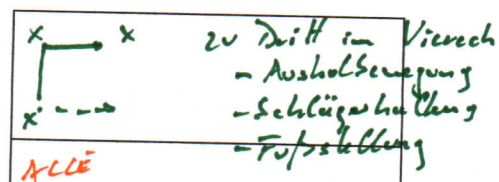 x x zu Dritt im Viereck
- Ausholbewegung
- Schlägerhaltung
x
- Fußstellung
ALLE